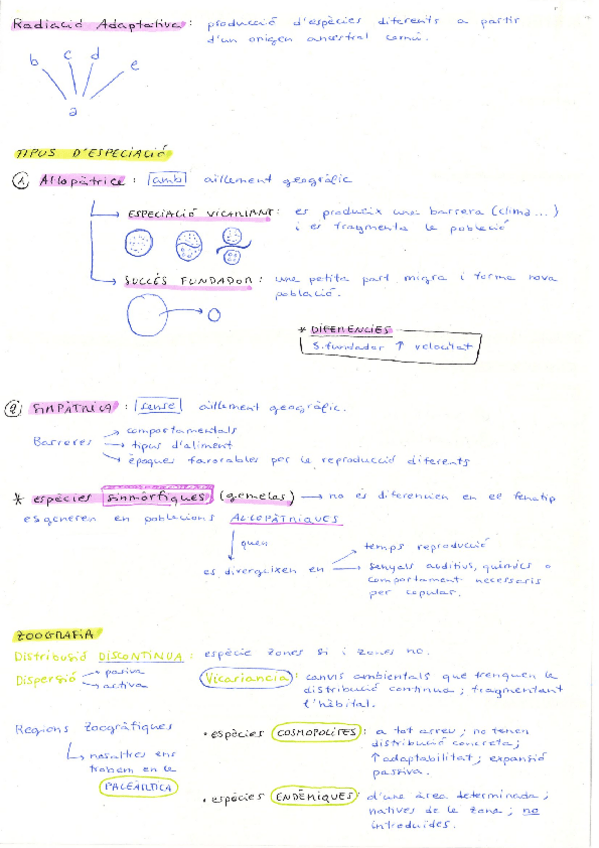 Radiació Adaptativa: producció d'espècies diferents a partir
d'un origen ancestral comú.
b c d e
a
TIPUS D'ESPECIACIÓ
1) Allopàtrica: amb aïllament geogràfic
ESPECIACIÓ VICARIANT: es produïx una barrera (clima...)
i es fragmenta la població
SUCCÉS FUNDADOR: una petita part migra i forma nova
població.
* DIFERÈNCIES
S. fundador ↑ velocitat
2) SIMPÀTRICA: sense aïllament geogràfic.
Barreres → comportamentals
→ tipus d'aliment
→ èpoques favorables per la reproducció diferents
* espècies sinmòrfiques (gemelas) → no és diferencien en el fenotip
es generen en poblacions ALLOPÀTRIQUES
quan
es divergeixen en → temps reproducció
→ senyals auditius, químics o
comportament necessaris
per copular.
ZOOGRAFIA
Distribució DISCONTINUA: espècie zones si i zones no.
Dispersió → pasiva
→ activa
Vicariancia: canvis ambientals que trenquen la
distribució continua; fragmentant
l'hàbitat.
Regions Zoogràfiques
↳ nosaltres ens
trobem en la
PALEÀRTICA
• espècies COSMOPOLITES: a tot arreu; no tenen
distribució concreta;
↑ adaptabilitat; expansió
passiva.
• espècies ENDÈMIQUES: d'una àrea determinada;
natives de la zona; no
introduïdes.